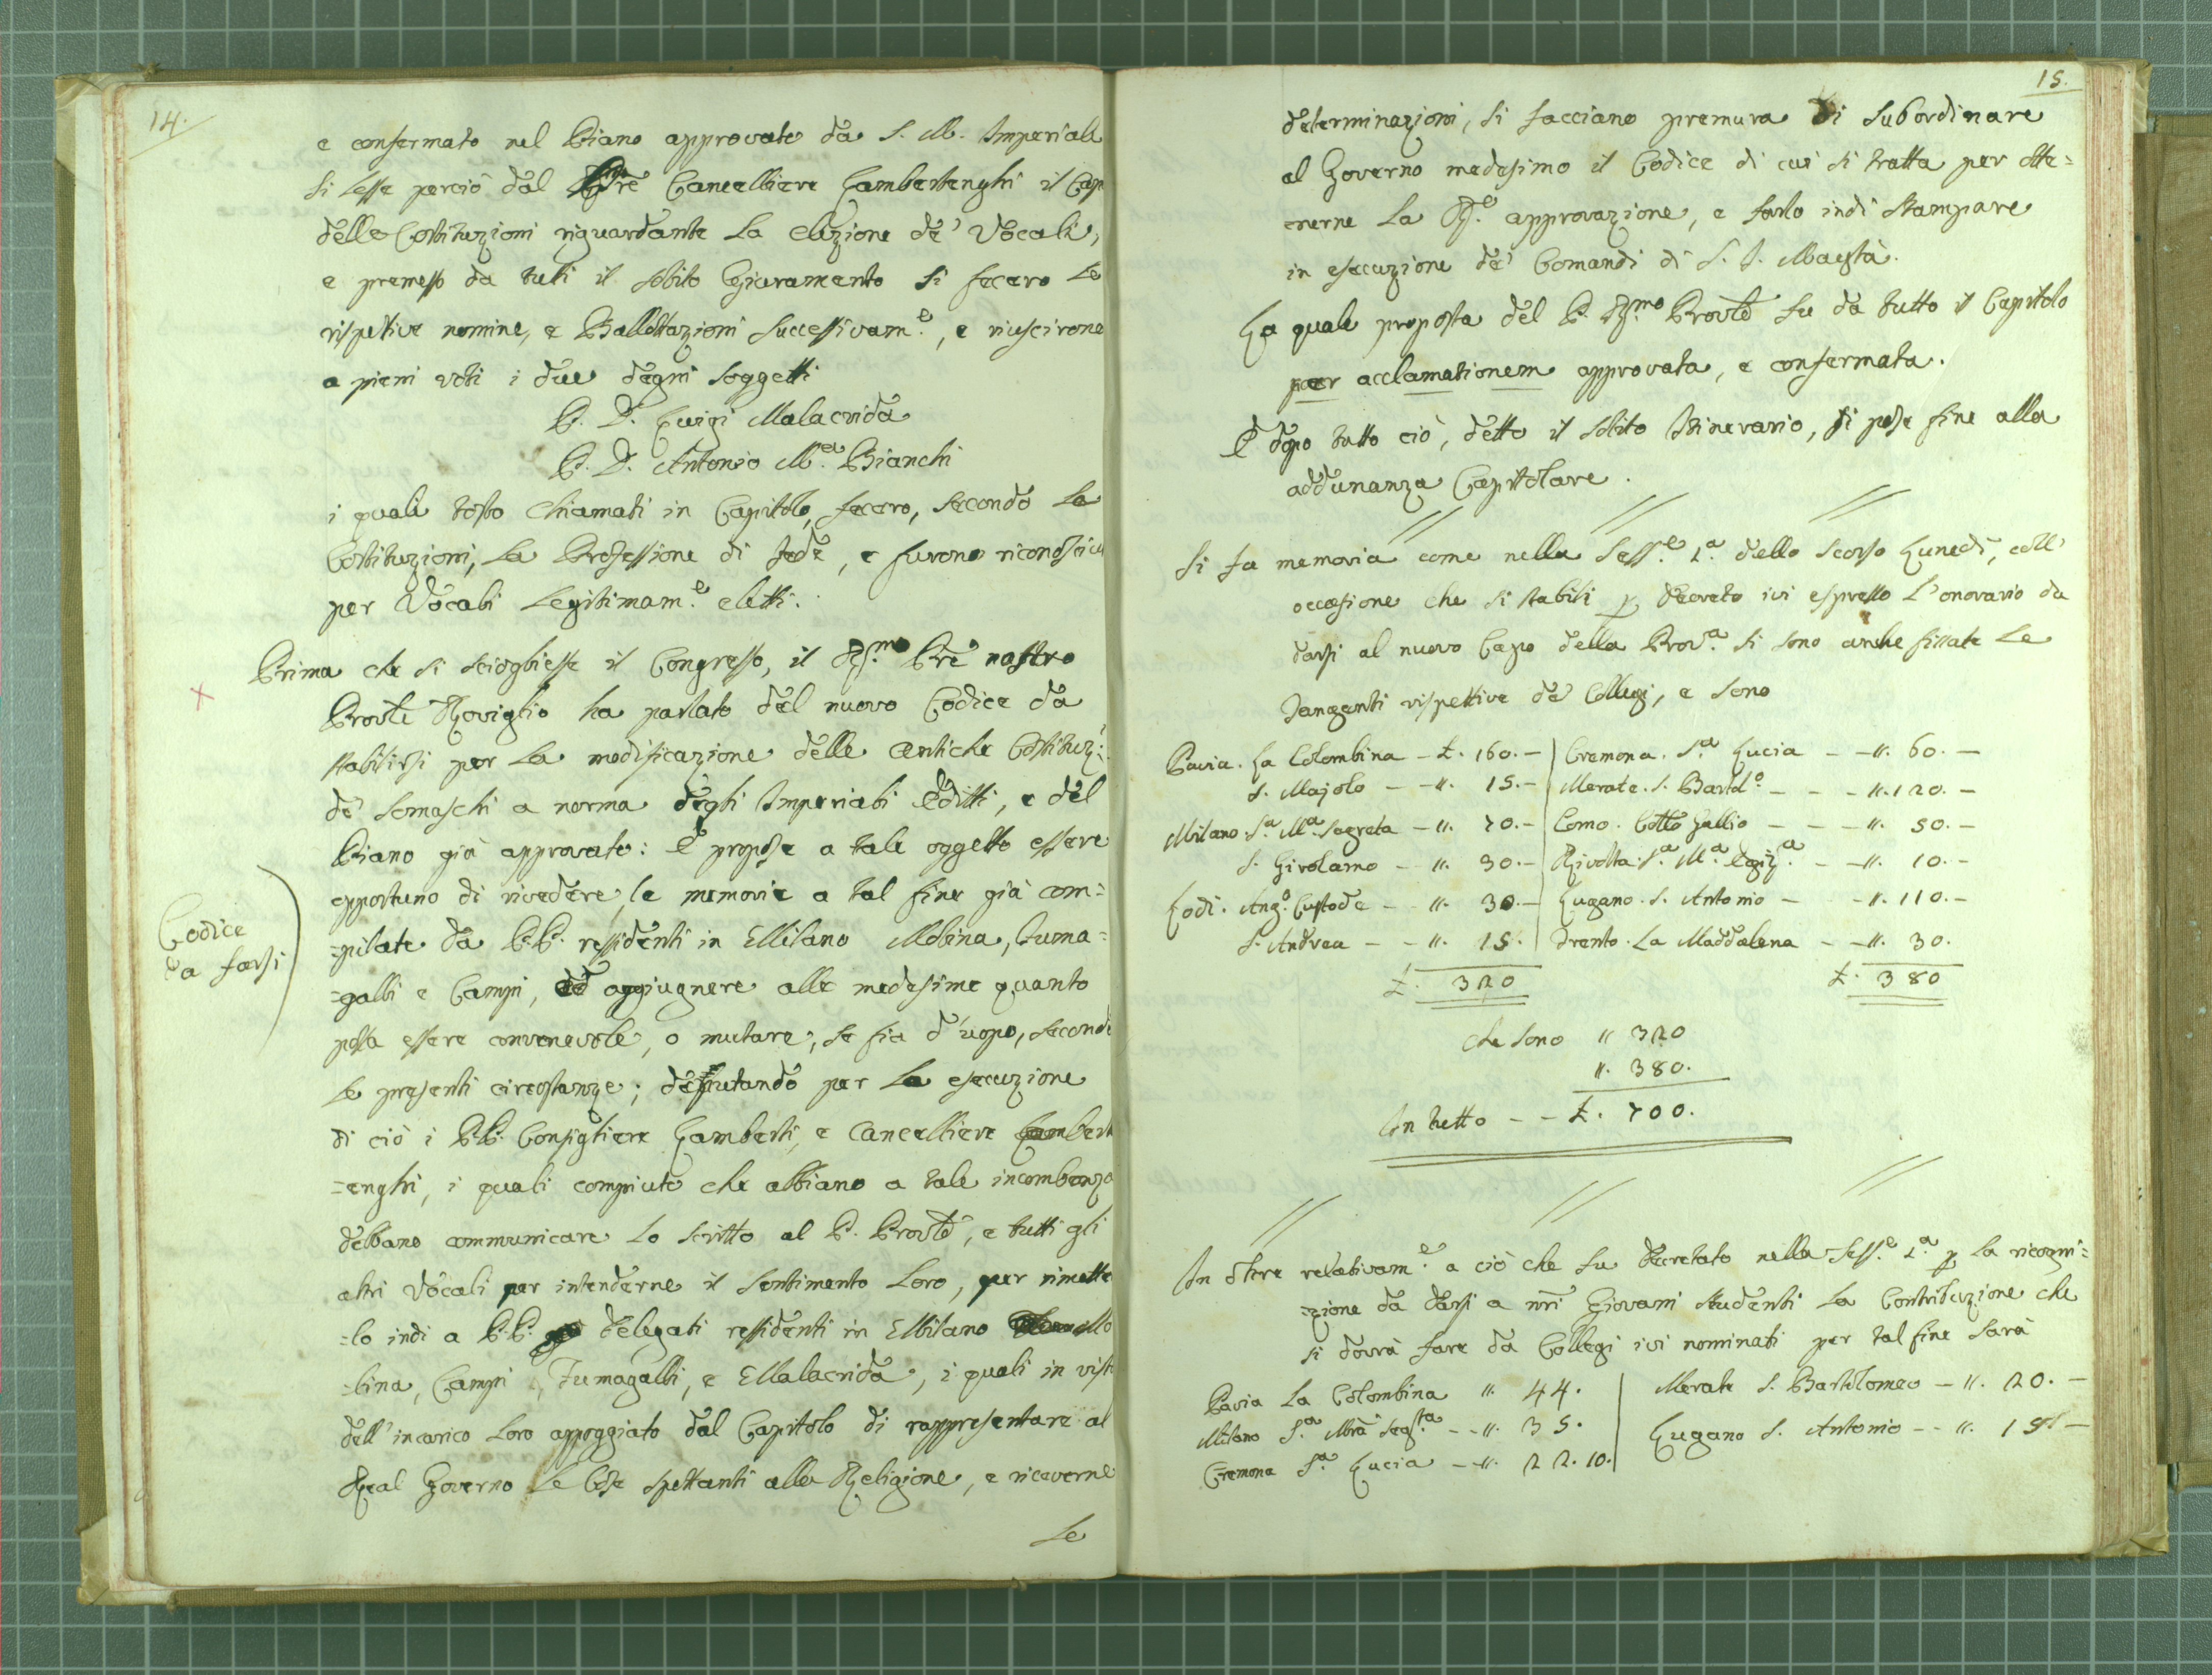 14.
e confermato nel Piano approvato da S. M. Imperiale
si lesse perciò dal Pre Cancelliere Lambertenghi il Cap
delle Costituzioni riguardante la elezione de' Vocali,
e premesso da tuti il solito Giuramento si fecero le
rispetive nomine, e Ballottazioni successivam.e, e riuscirono
a pieni voti i due degni soggetti
P. D. Luigi Malacrida
P. D. Antonio M.a Bianchi
i quali tosto chiamati in Capitolo, fecero, secondo le
Costituzioni, la Professione di fede, e furono riconosciu
per Vocali legitimam.e eletti.
Prima che si sciogliesse il Congresso, il Rṣ.mo Pre nostro
Provle Roviglio ha parlato del nuovo Codice da
stabilirsi per la modificazione delle antiche Costituz:
de' Somaschi a norma degli Imperiali Editti, e del
Piano già approvato: E propose a tale oggetto essere
opportuno di rivedere le memorie a tal fine già com=
=pilate da P.P. residenti in Milano Molina, Fuma=
=galli e Campi, ed aggiugnere alle medesime quanto
possa essere convenevole, o mutare, se fia d'uopo, secondo
le presenti circostanze; deputando per la esecuzione
di ciò i P.P. Consigliere Lamberti, e Cancelliere Lambert
=enghi, i quali compiuto che abbiano a tale incombenza
debbano communicare lo scritto al P. Provle, e tutti gli
altri Vocali per intenderne il sentimento loro, per rimette
=lo indi a P.P. delegati residenti in Milano Mo
=lina, Campi, Fumagalli, e Malacrida, i quali in vista
dell'incarico loro appoggiato dal Capitolo di rappresentare al
Real Governo le Cose spettanti alla Religione, e riceverne
le
Codice
da farsi
15.
determinazioni, si facciano premura di subordinare
al Governo medesimo il Codice di cui si tratta per otte=
enerne la R.e approvazione, e farlo indi stampare
in esecuzione de' Comandi di S. I. Maestà.
La quale proposta del P. Rṣ.mo Provle fu da tutto il Capitolo
per acclamationem approvata, e confermata.
E dopo tutto ciò, detto il solito Itinerario, si pose fine alla
addunanza Capitolare.
Si fa memoria come nella Sess.e 1.a dello scorso Lunedì, coll'
occasione che si stabilì p decreto ivi espresso l'onorario da
darsi al nuovo Capo della Prov.a si sono anche fissate le
Tangenti rispettive de Collegi, e sono
Pavia. La Colombina - £. 160. - | Cremona. S.a Lucia - - ". 60. -
S. Majolo - - ". 15. - | Merate. S. Bartol.o - - - ". 120. -
Milano. S.a M.a Segreta - ". 70. - | Como. Collo Gallio - - - ". 50. -
S. Girolamo - - ". 30. - | Rivolta. S.a M.a Egiz.a - - ". 10. -
Lodi. Ang.o Custode - - ". 30. - | Lugano. S. Antonio - - ". 110. -
S. Andrea - - ". 15. | Trento. La Maddalena - - ". 30.
£. 320 £. 380
che sono " 320
". 380.
In tutto - - £. 700.
In oltre relativam.e a ciò che fu decretato nella Sess.e 1.a p la ricogni=
=zione da darsi a nri Giovani studenti la Contribuzione che
si dovrà fare da Collegi ivi nominati per tal fine sarà
Pavia La Colombina ". 44. | Merate S. Bartolomeo - ". 20. -
Milano S.a Mra Seg.ta - - ". 35. | Lugano S. Antonio - - ". 15 -
Cremona S.a Lucia - - ". 22. 10. |